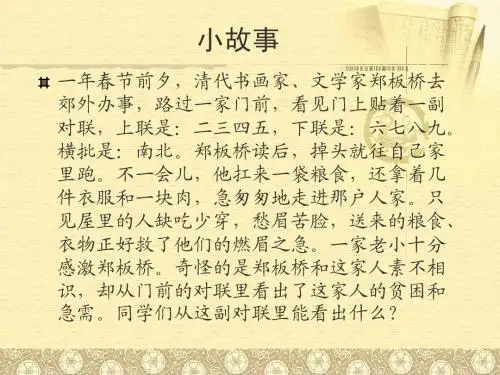 小故事
一年春节前夕，清代书画家、文学家郑板桥去
郊外办事，路过一家门前，看见门上贴着一副
对联，上联是：二三四五，下联是：六七八九。
横批是：南北。郑板桥读后，掉头就往自己家
里跑。不一会儿，他扛来一袋粮食，还拿着几
件衣服和一块肉，急匆匆地走进那户人家。只
见屋里的人缺吃少穿，愁眉苦脸，送来的粮食、
衣物正好救了他们的燃眉之急。一家老小十分
感激郑板桥。奇怪的是郑板桥和这家人素不相
识，却从门前的对联里看出了这家人的贫困和
急需。同学们从这副对联里能看出什么？